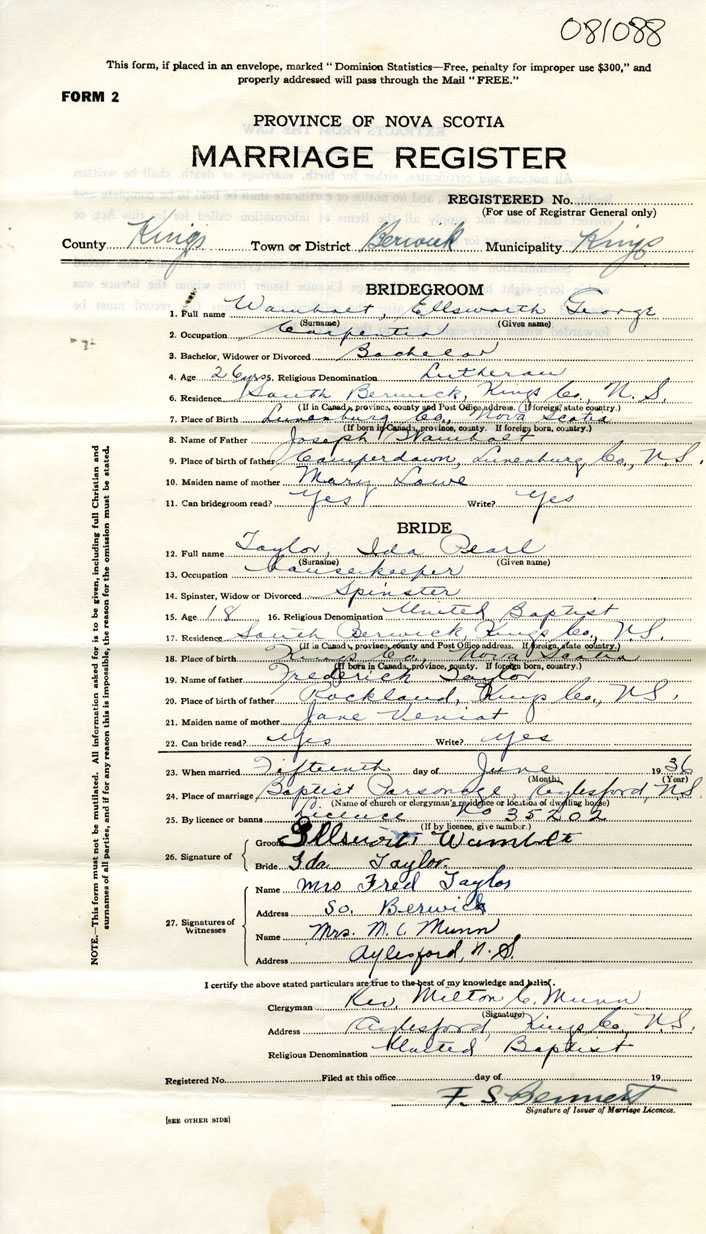 081088
This form, if placed in an envelope, marked "Dominion Statistics—Free, penalty for improper use $300," and
properly addressed will pass through the Mail "FREE."
FORM 2
PROVINCE OF NOVA SCOTIA
MARRIAGE REGISTER
REGISTERED No.
(For use of Registrar General only)
County Kings Town or District Berwick Municipality Kings
BRIDEGROOM
1. Full name Wamholt, Ellsworth George
(Surname) (Given name)
2. Occupation Carpenter
3. Bachelor, Widower or Divorced Bachelor
4. Age 26 yrs 5. Religious Denomination Lutheran
6. Residence South Berwick, Kings Co., N.S.
(If in Canada, province, county and Post Office address. If foreign, state country.)
7. Place of Birth Lunenburg Co., Nova Scotia
(If born in Canada, province, county. If foreign born, country.)
8. Name of Father Joseph Wamholt
9. Place of birth of father Camperdown, Lunenburg Co., N.S.
10. Maiden name of mother Mary Lowe
11. Can bridegroom read? Yes Write? Yes
BRIDE
12. Full name Taylor, Ida Pearl
(Surname) (Given name)
13. Occupation housekeeper
14. Spinster, Widow or Divorced Spinster
15. Age 18 16. Religious Denomination United Baptist
17. Residence South Berwick, Kings Co., N.S.
(If in Canada, province, county and Post Office address. If foreign, state country.)
18. Place of birth Kings Co., Nova Scotia
(If born in Canada, province, county. If foreign born, country.)
19. Name of father Frederick Taylor
20. Place of birth of father Rockland, Kings Co., N.S.
21. Maiden name of mother Jane Veniot
22. Can bride read? Yes Write? Yes
23. When married Fifteenth day of June 1936
(Month) (Year)
24. Place of marriage Baptist Parsonage, Aylesford, N.S.
(Name of church or clergyman's residence or location of dwelling house)
25. By licence or banns Licence No 35202
(If by licence, give number.)
26. Signature of Groom Ellsworth Wambolt
Bride Ida Taylor
27. Signatures of Witnesses
Name Mrs Fred Taylor
Address So. Berwick
Name Mrs. M. C. Munn
Address Aylesford, N.S.
I certify the above stated particulars are true to the best of my knowledge and belief.
Clergyman Rev, Milton C. Munn
(Signature)
Address Aylesford, Kings Co., N.S.
Religious Denomination United Baptist
Registered No. Filed at this office day of 19
F. S. Bennert
Signature of Issuer of Marriage Licences.
[SEE OTHER SIDE]
NOTE.—This form must not be mutilated. All information asked for is to be given, including full Christian and
surnames of all parties, and if for any reason this is impossible, the reason for the omission must be stated.